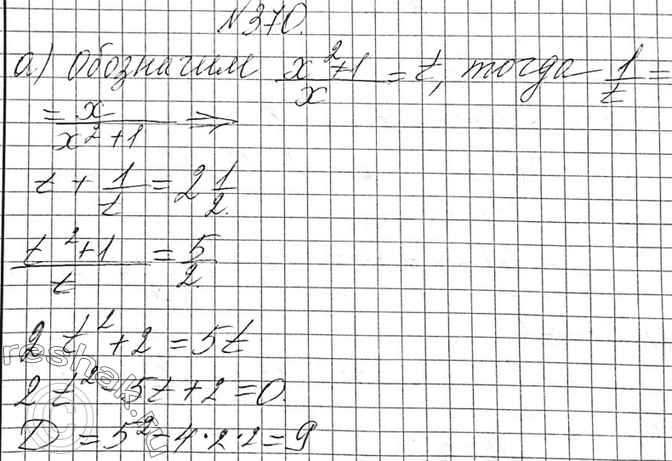 №370.
а) Обозначим (x²+1)/x = t, тогда 1/t =
= x/(x²+1) ⇒
t + 1/t = 2 1/2.
(t²+1)/t = 5/2.
2t² + 2 = 5t
2t² - 5t + 2 = 0.
D = 5² - 4·2·2 = 9
reshak.ru